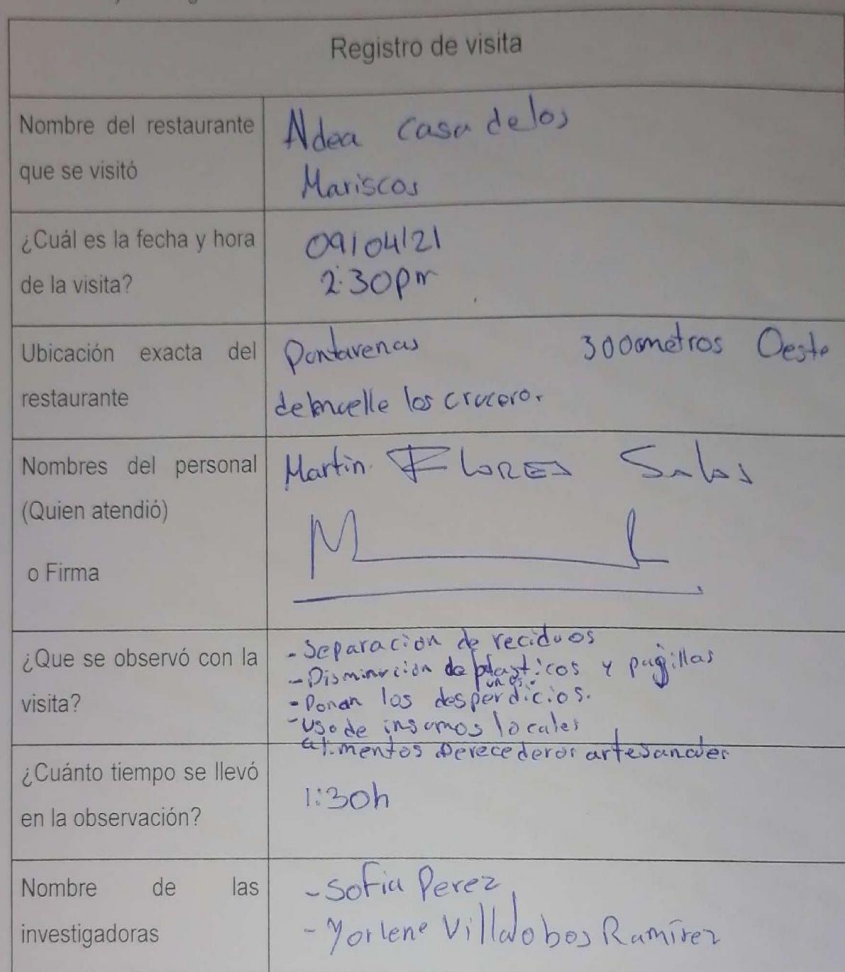 Registro de visita
Nombre del restaurante
que se visitó
Aldea Casa de los
Mariscos
¿Cuál es la fecha y hora
de la visita?
09/04/21
2:30pm
Ubicación exacta del
restaurante
Puntarenas 300ometros Oeste
del muelle los crucero.
Nombres del personal
(Quien atendió)
o Firma
Martin FLORES Salas
¿Que se observó con la
visita?
- Separacion de reciduos
- Disminución de plasticos y pagillas
unos.
- Donan los desperdicios.
- Uso de insumos locales
alimentos perecederos artesanales
¿Cuánto tiempo se llevó
en la observación?
1:30h
Nombre de las
investigadoras
- Sofia Perez
- Yorlene Villalobos Ramírez